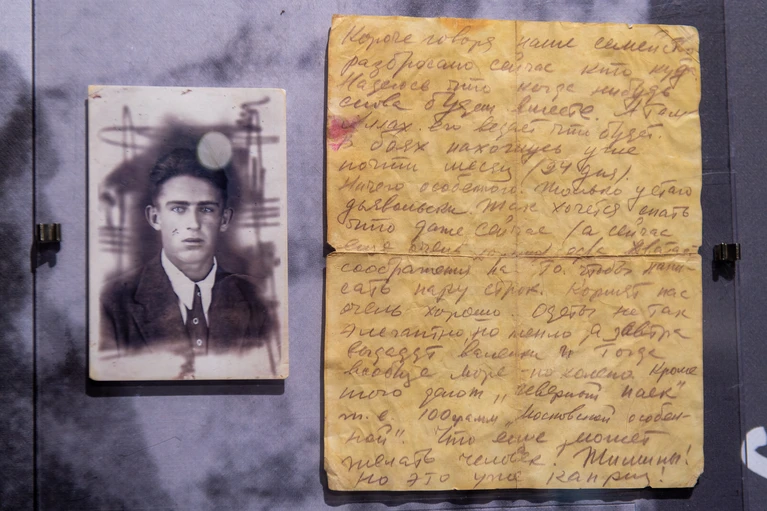 Короче говоря наше семейство
разбросано сейчас кто куда
Надеюсь что когда нибудь
снова будем вместе. А там
его ведает что будет.
В боях нахожусь уже
почти месяц (24 дня).
Ничего особенного. Только устаю
дьявольски. Так хочется спать
что даже сейчас (а сейчас
еще очень хватает
соображения на то, чтобы напи-
сать пару строк. Кормят нас
очень хорошо. Одеты не так
элегантно, но тепло а завтра
выдадут валенки и тогда
вообще море по колено. Кроме
того дают „ паек"
т. е. 100 грамм „Московской особен-
ной". Что еще может
желать человек! Тишины!
Но это уже каприз!